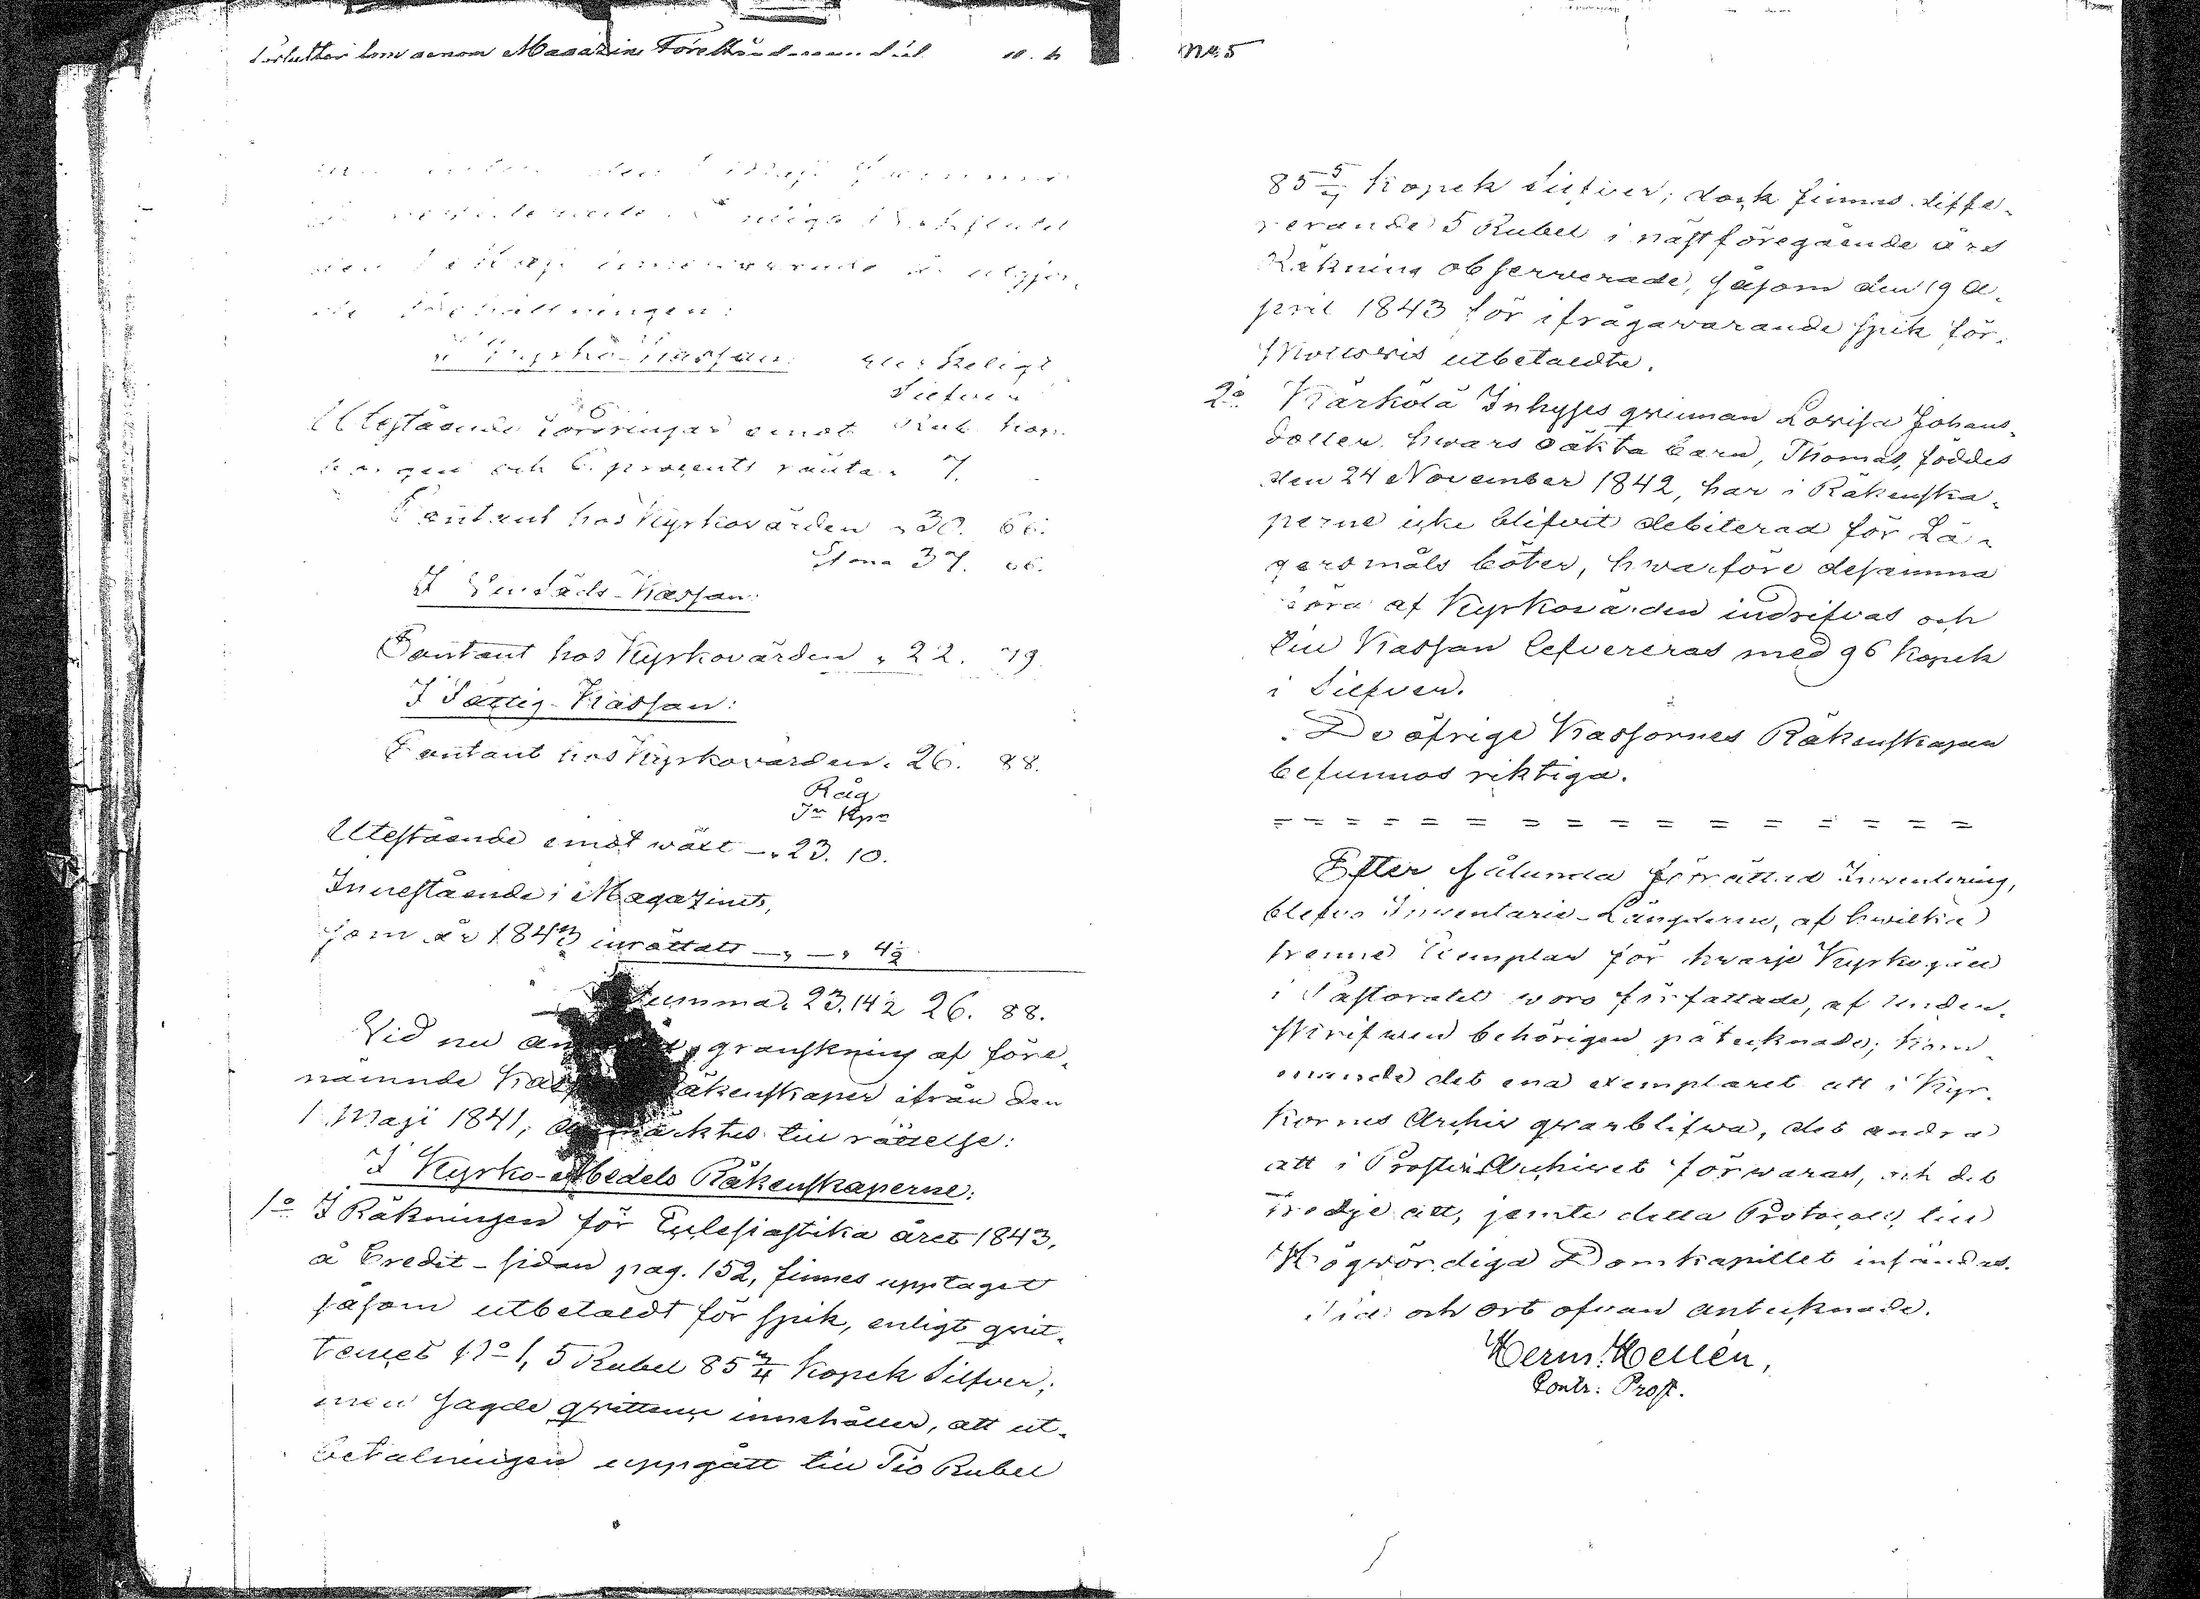 Magazins Föreståndare
No 5
den 1 Maji
enligt Bokslutet
den 1 Maji innevarande år utgjor-
de Behållningen:
I Kyrko-Kassan:
Silfver
Utestående fordringar emot Rub. kop.
borgen och 6 procents ränta „ 7. –
Contant hos Kyrkovärden „ 30. 66.
Sma 37. 66.
I Linsäds-Kassan:
Contant hos Kyrkovärden „ 22. 79.
I Fattig-Kassan:
Contant hos Kyrkovärden „ 26. 88.
Råg
Tr Kpr
Utestående emot wäxt — „ 23. 10.
Innestående i Magazinet,
som år 1843 inrättats — „ — „ 4½
Summa „ 23. 14½ 26. 88.
Vid nu granskning af före-
nämnde Räkenskaper ifrån den
1 Maji 1841, anmärktes till rättelse:
I Kyrko-Medels Räkenskaperne:
1o I Räkningen för Ecclesiastika året 1843,
å Credit-sidan pag. 152, finnes upptaget
såsom utbetaldt för spik, enligt qvit-
tencet No 1, 5 Rubel 85 5/7 Kopek Silfver;
men sagde qvittence innehåller, att ut-
betalningen uppgått till Tio Rubel
85 5/7 Kopek Silfver; dock finnas diffe-
rerande 5 Rubel i nästföregående års
Räkning observerade, såsom den 19 A-
pril 1843 för ifrågavarande spik för-
skottsvis utbetaldte.
2o Kärkölä Inhyses qvinnan Lovisa Johans-
dotter, hvars oäkta barn, Thomas, föddes
den 24 November 1842, har i Räkenska-
perne icke blifvit debiterad för Lä-
gersmåls böter, hwarföre desamma
böra af Kyrkovärden indrifvas och
till Kassan lefvereras med 96 Kopek
i Silfver.
De öfrige Kassornes Räkenskaper
befunnos riktiga.
= = = = = = = = = = = = = = =
Efter sålunda förrättad Inventering,
blefvo Inventarie-Längderne, af hwilka
trenne Exemplar för hwarje Kyrkogäll
i Pastoratet woro författade, af Under-
skrifwen behörigen påtecknade; kom-
mande det ena exemplaret att i Kyr-
kornes Archiv qvarblifwa, det andra
att i Prosteri Archivet förwaras, och det
tredje att, jemte detta Protocoll, till
Högwördiga Domkapitlet insändas.
Tid och ort ofvan antecknade.
Herm: Hellén,
Contr: Prost.